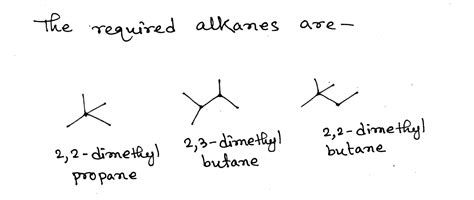 The required alkanes are -
2,2-dimethyl
propane
2,3-dimethyl
butane
2,2-dimethyl
butane